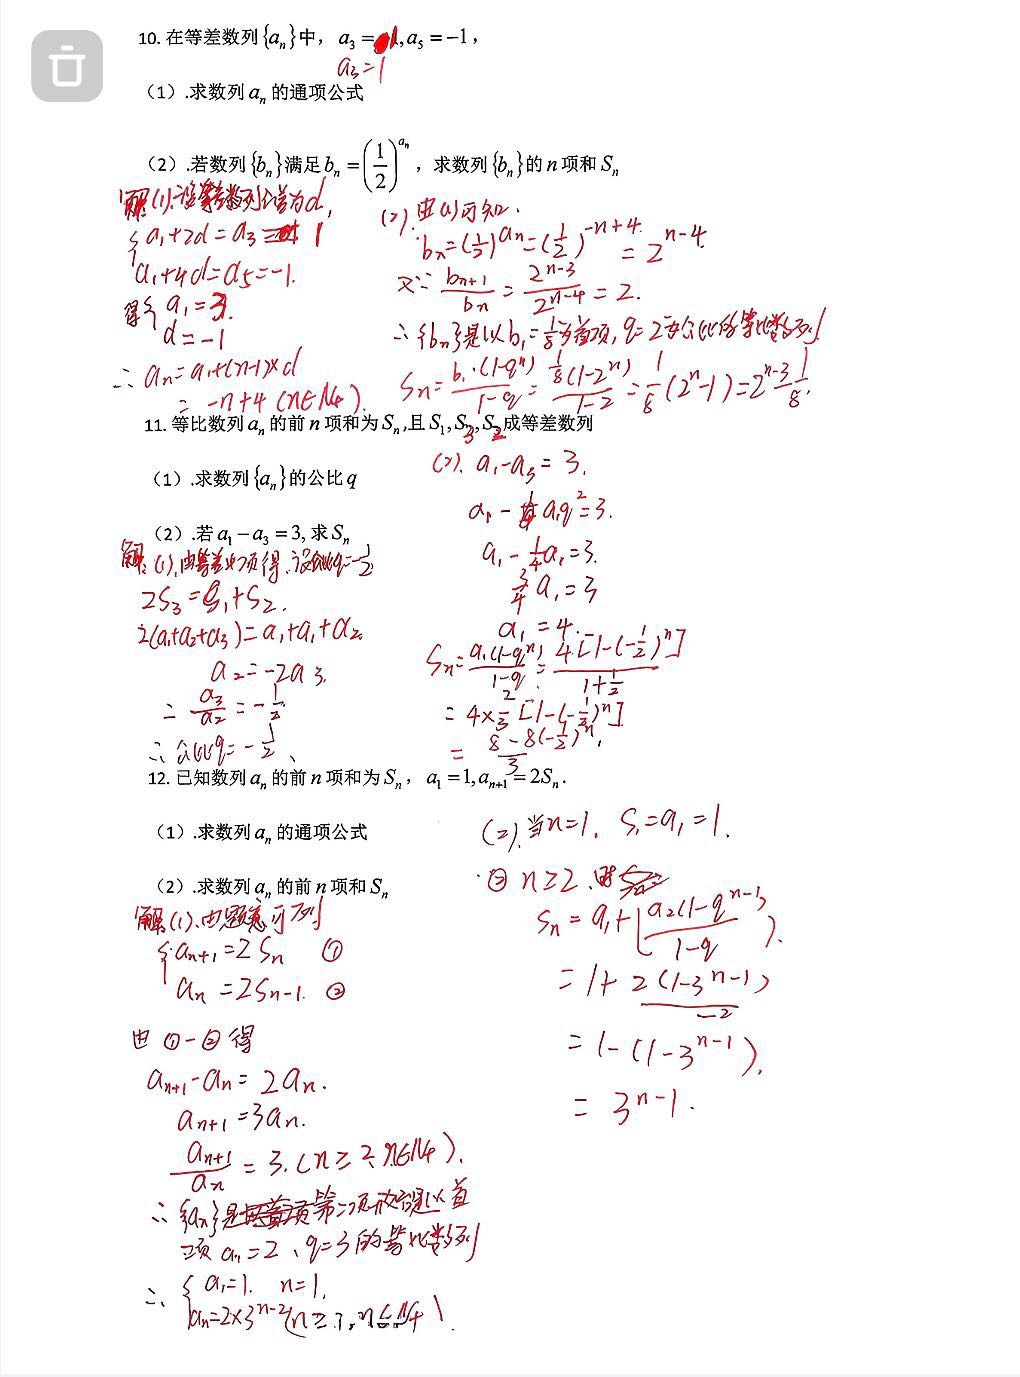 10. 在等差数列{aₙ}中，a₃ = 1, a₅ = −1，
a₃ = 1
（1）.求数列 aₙ 的通项公式
（2）.若数列{bₙ}满足 bₙ = (1/2)^aₙ，求数列{bₙ}的 n 项和 Sₙ
解(1).设等差数列公差为d,
{ a₁+2d = a₃ = 1
a₁+4d = a₅ = -1.
得{ a₁ = 3.
d = -1
∴ aₙ = a₁+(n-1)×d
= -n+4 (n∈N₊).
(2). 由(1)可知.
bₙ = (1/2)^aₙ = (1/2)^(-n+4) = 2^(n-4)
又∵ bₙ₊₁/bₙ = 2^(n-3)/2^(n-4) = 2.
∴ {bₙ}是以b₁=1/8为首项, q=2为公比的等比数列
Sₙ = b₁·(1-qⁿ)/(1-q) = 1/8(1-2ⁿ)/(1-2) = 1/8(2ⁿ-1) = 2^(n-3)-1/8.
11. 等比数列 aₙ 的前 n 项和为 Sₙ,且 S₁, S₃, S₂ 成等差数列
（1）.求数列{aₙ}的公比 q
（2）.若 a₁ − a₃ = 3, 求 Sₙ
解:(1).由等差中项得.
2S₃ = a₁+S₂.
2(a₁+a₂+a₃) = a₁+a₁+a₂
a₂ = -2a₃.
∴ a₃/a₂ = -1/2
∴ 公比q = -1/2.
(2). a₁-a₃ = 3.
a₁ - a₁q² = 3.
a₁ - 1/4a₁ = 3.
3/4 a₁ = 3
a₁ = 4.
Sₙ = a₁(1-qⁿ)/(1-q) = 4·[1-(-1/2)ⁿ]/(1+1/2)
= 4×2/3 [1-(-1/2)ⁿ]
= (8-8(-1/2)ⁿ)/3.
12. 已知数列 aₙ 的前 n 项和为 Sₙ，a₁ = 1, aₙ₊₁ = 2Sₙ.
（1）.求数列 aₙ 的通项公式
（2）.求数列 aₙ 的前 n 项和 Sₙ
解(1).由题意可列
{ aₙ₊₁ = 2Sₙ ①
aₙ = 2Sₙ₋₁. ②
由 ①-② 得
aₙ₊₁-aₙ = 2aₙ.
aₙ₊₁ = 3aₙ.
aₙ₊₁/aₙ = 3. (n≥2, n∈N₊).
∴ {aₙ}是 第二项 是以首
项 = 2、q=3的等比数列
∴ { a₁=1. n=1.
aₙ=2×3^(n-2) (n≥
(2).当n=1. S₁=a₁=1.
② n≥2.时
Sₙ = a₁+[a₂(1-q^(n-1))/(1-q)].
= 1+ 2(1-3^(n-1))/-2
= 1-(1-3^(n-1)).
= 3^(n-1).